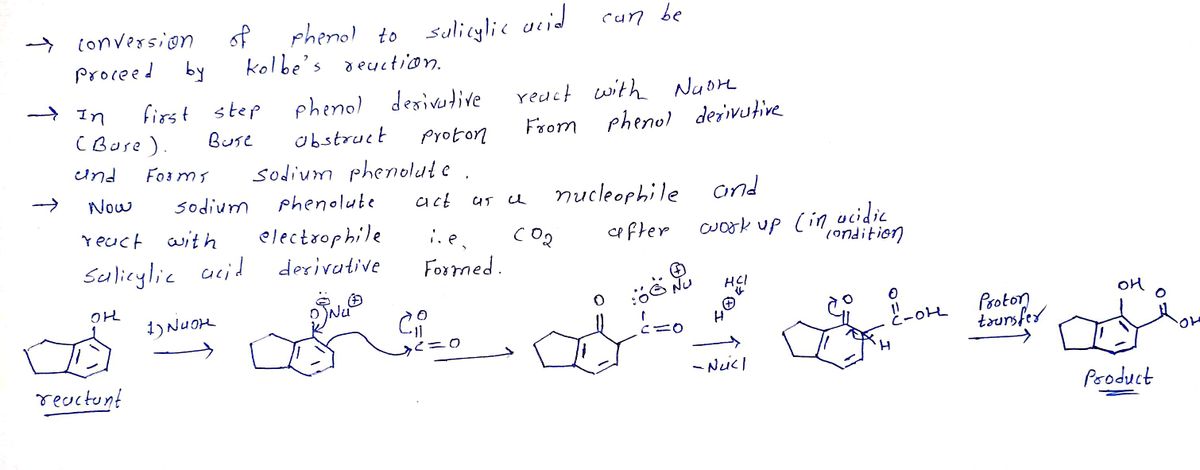 → conversion of phenol to salicylic acid can be
proceed by kolbe's reaction.
→ In first step phenol derivative react with NaOH
(Base). Base abstract proton From phenol derivative
and Forms sodium phenolate.
→ Now sodium phenolate act as a nucleophile and
react with electrophile i.e, CO2 after work up (in acidic condition
salicylic acid derivative Formed.
OH 1) NaOH O Na ⊕ O C=O O :O: ⊖ Na ⊕ C=O HCl H⊕ -NaCl O O C-OH H Proton transfer OH O OH
reactant Product